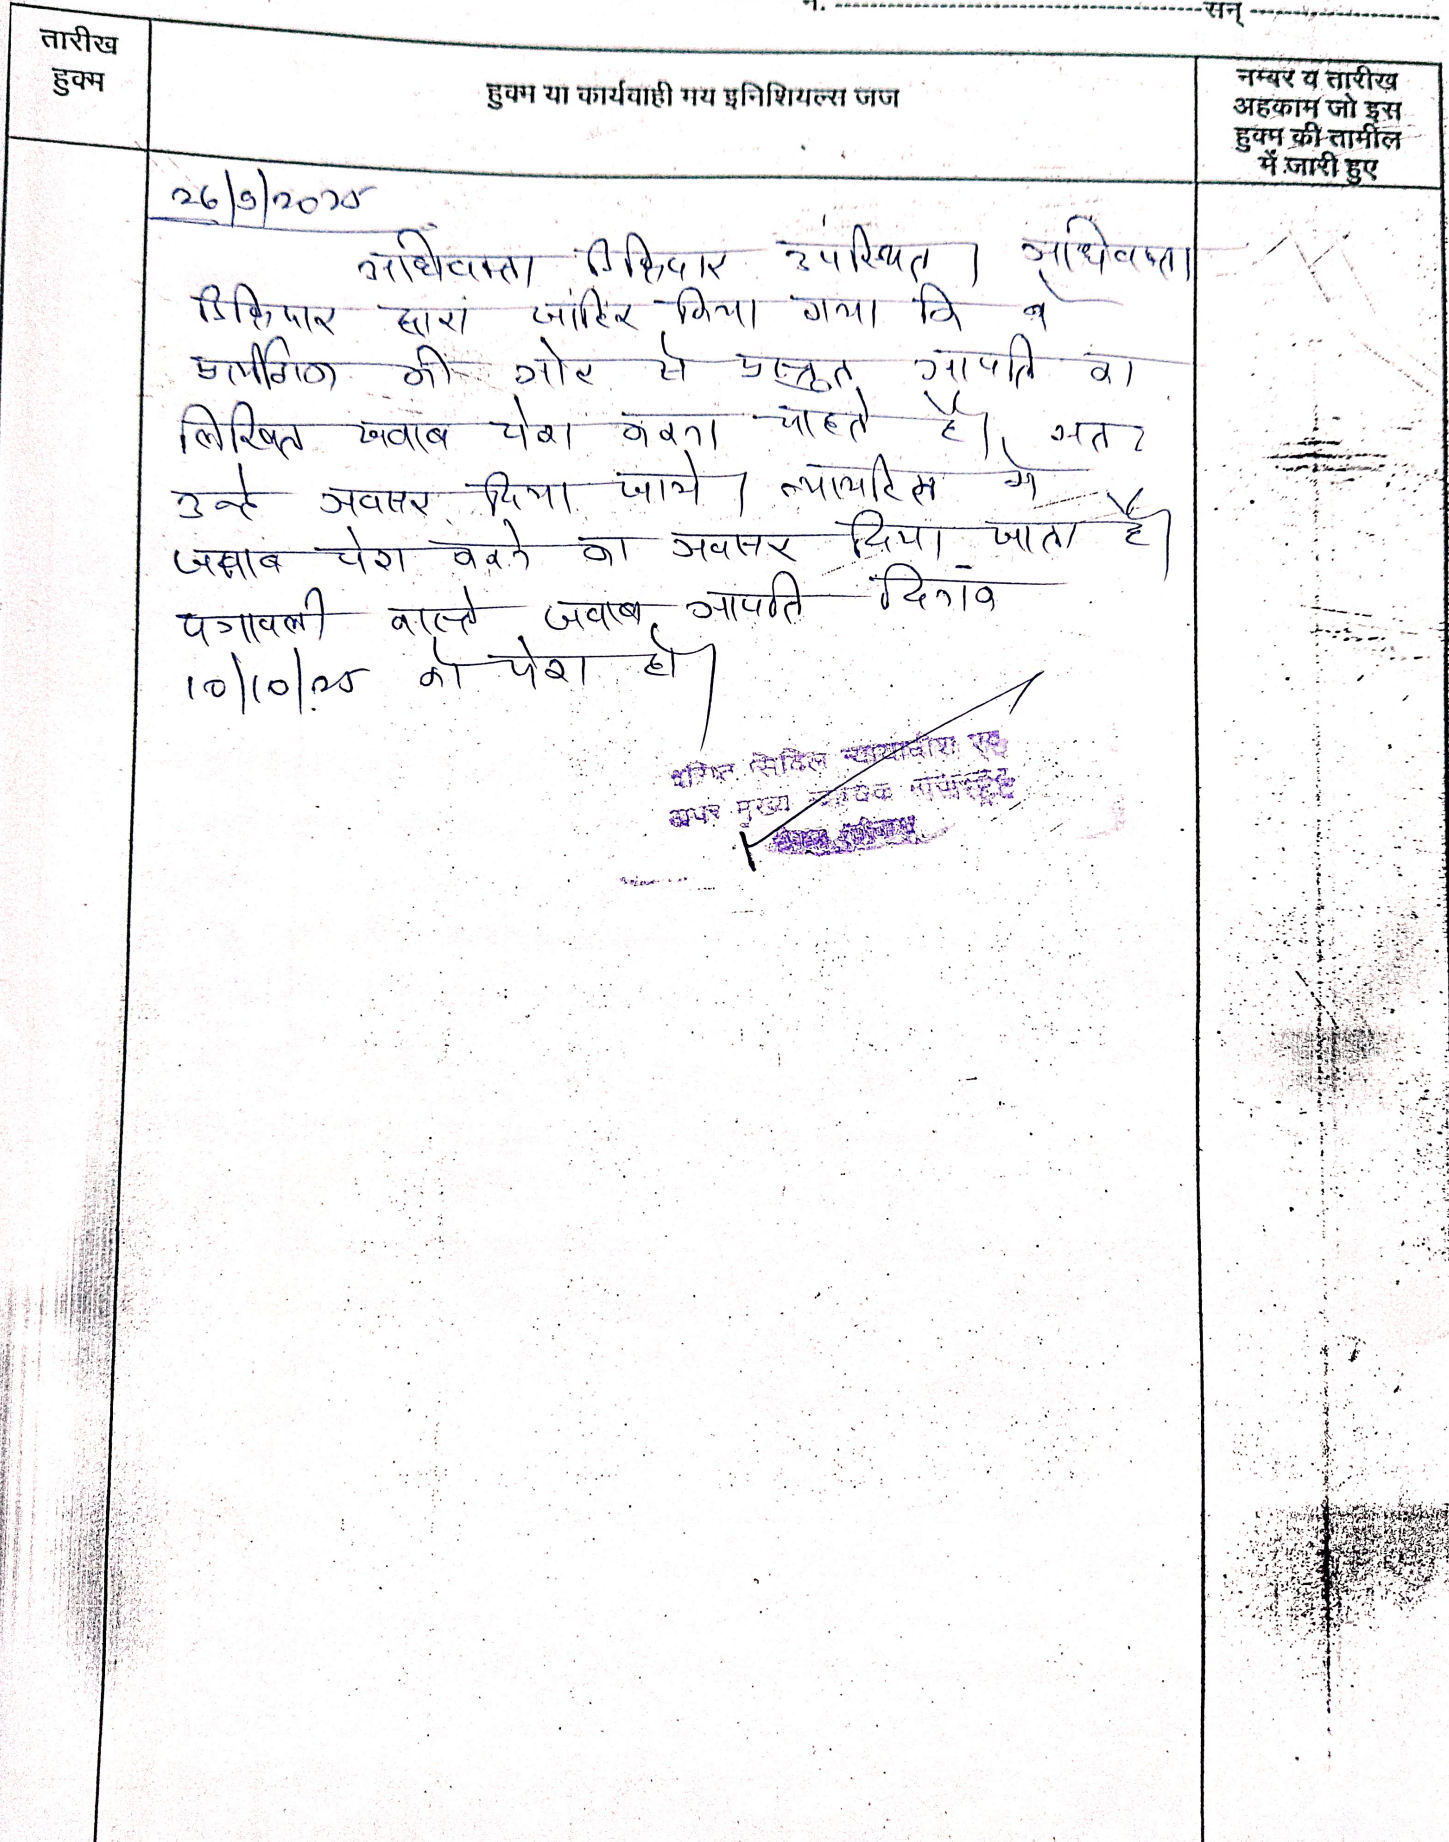 न. ---------- सन् ----------
तारीख
हुक्म
हुक्म या कार्यवाही मय इनिशियल्स जज
नम्बर व तारीख
अहकाम जो इस
हुक्म की तामील
में जारी हुए
26/9/2025
अधिवक्ता डिक्रिदार उपस्थित। अधिवक्ता
डिक्रिदार द्वारा जाहिर किया गया कि वे
की ओर से प्रस्तुत आपति का
लिखित जवाब पेश करना चाहते है। अतः
उन्हे अवसर दिया जाये। न्यायहित मे
जवाब पेश करने का अवसर दिया जाता है।
पत्रावली वास्ते जवाब आपति दिनांक
10/10/25 को पेश हो।
वरिष्ठ सिविल न्यायाधीश एवं
अपर मुख्य न्यायिक मजिस्ट्रेट